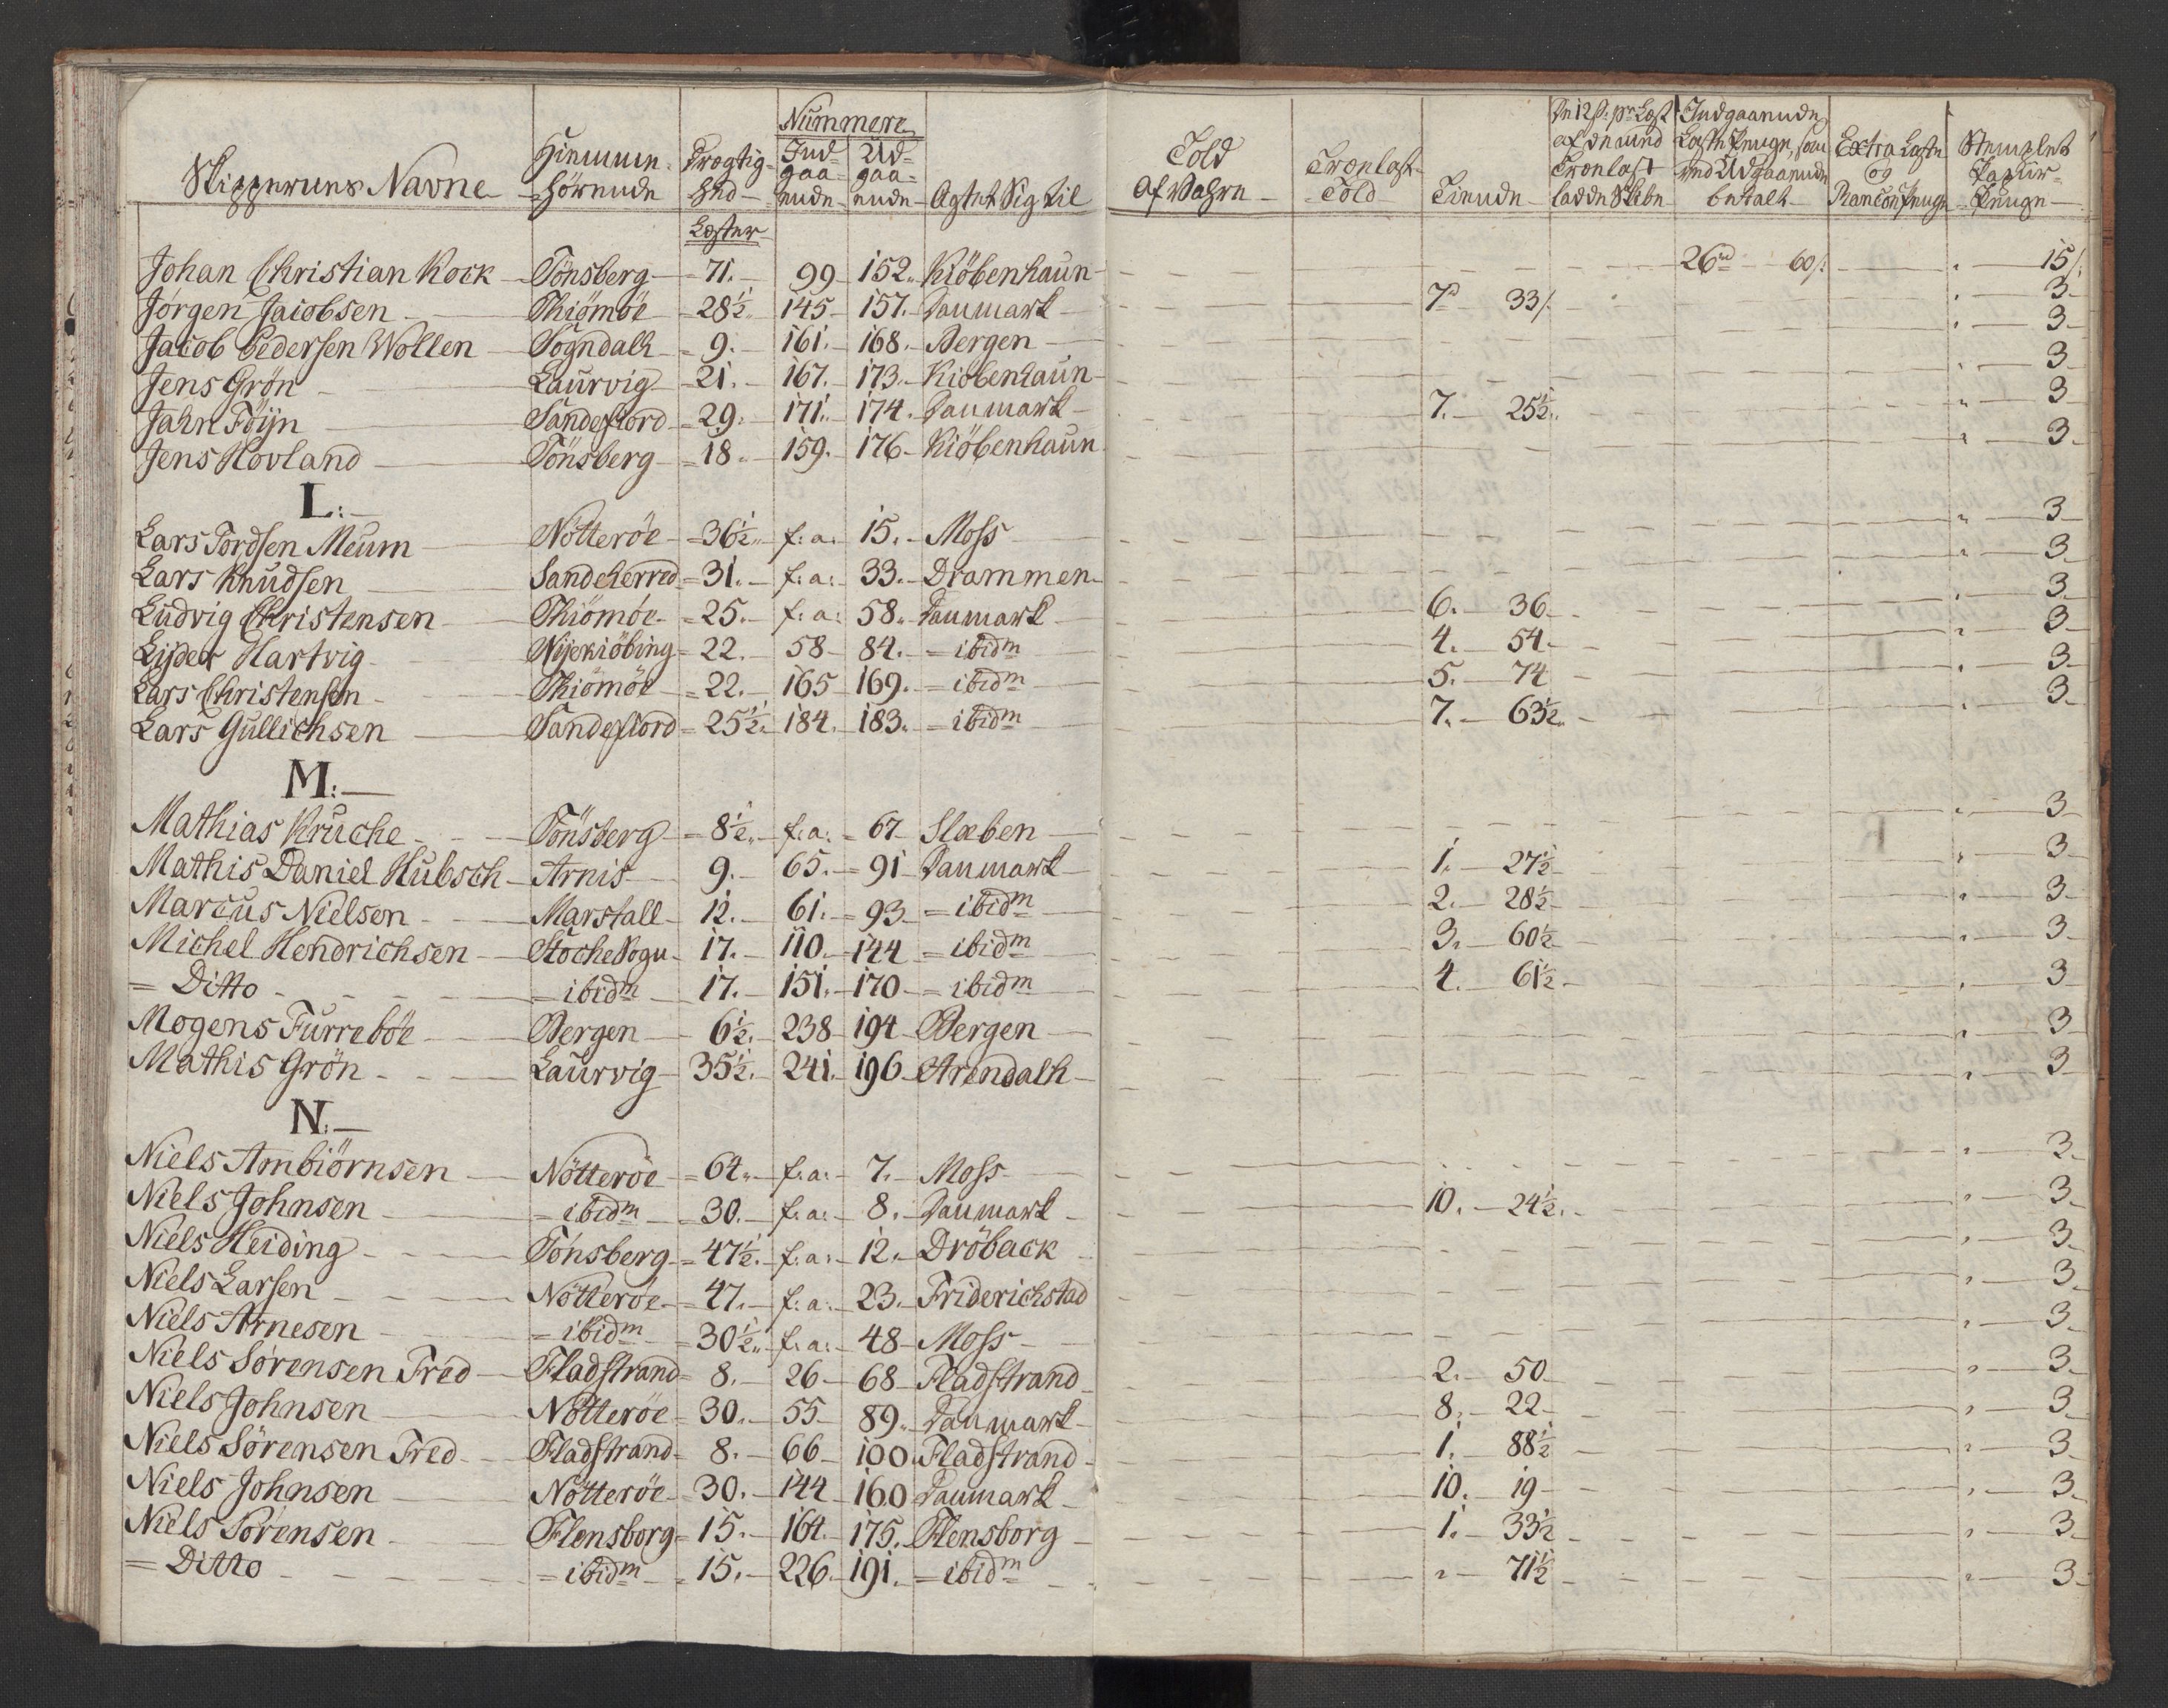 Skippernes Navne Hiemme- hörende Drægtig- hed Læster Nummere Ind- gaa- ende Ud- gaa- ende Agtet Sig til Told af Vahre Trælast Told Tiende De 12 s: pr Læst af de med Trælast ladde Skibe Indgaaende Læste Penge, som ved Udgaaende betalt Extra Læste og Rançon Penge Stemplet Papiir- Penge
Johan Christian Kock Tönsberg 71. 99 152. Kiöbenhaun 26rd 60s: " 15s:
Jörgen Jacobsen Thiömöe 28½ 145 157. Danmark 7rd 33s. " 3
Jacob Pedersen Wollen Sogndahl 9. 161. 168. Bergen " 3
Jens Grön Laurvig 21. 167. 173. Kiöbenhaun " 3
Jahn Föÿn Sandefiord 29. 171. 174. Danmark 7. 25½ " 3
Jens Hovland Tönsberg 18. 159. 176 Kiöbenhaun " 3
L:
Lars Tordsen Meum Nötteröe 36½ f: a: 15. Moss " 3
Lars Knudsen Sandeherred 31. f: a: 33. Drammen " 3
Ludvig Christensen Thiömöe 25. f: a: 58. Danmark 6. 36 " 3
Lÿder Hartvig Nÿekiöbing 22. 58 84. ibidm 4. 54 " 3
Lars Christensen Thiömöe 22. 165 169. ibidm 5. 74 " 3
Lars Gullichsen Sandefiord 25½ 184. 183. ibidm 7. 63½ " 3
M:
Mathias Kruche Tönsberg 8½ f: a: 67 Slæben " 3
Mathis Daniel Hubsch Arnis 9. 65. 91 Danmark 1. 27½ " 3
Marcus Nielsen Marstall 12. 61. 93 ibidm 2. 28½ " 3
Michel Hendrichsen Stochesogn 17. 110. 144 ibidm 3. 60½ " 3
= Ditto = ibidm 17. 151. 170 = ibidm 4. 61½ " 3
Mogens Furreböe Bergen 6½ 238 194 Bergen " 3
Mathis Grön Laurvig 35½ 241. 196 Arendahl " 3
N:
Niels Ambiörnsen Nötteröe 64. f: a: 7. Moss " 3
Niels Johnsen = ibidm 30. f: a: 8. Danmark 10. 24½ " 3
Niels Heiding Tönsberg 47½ f: a: 12. Dröback " 3
Niels Larsen Nötteröe 47. f: a: 23. Friderichstad " 3
Niels Arnesen = ibidm 30½ f: a: 48 Moss " 3
Niels Sörensen Fred Fladstrand 8. 26 68 Fladstrand 2. 50 " 3
Niels Johnsen Nötteröe 30. 55 89. Danmark 8. 22 " 3
Niels Sörensen Fred Fladstrand 8. 66 100 Fladstrand 1. 88½ " 3
Niels Johnsen Nötteröe 30. 144 160 Danmark 10. 19 " 3
Niels Sörensen Flensborg 15. 164. 175. Flensborg 1. 33½ " 3
= Ditto = ibidm 15. 226. 191. = ibidm " 71½ " 3